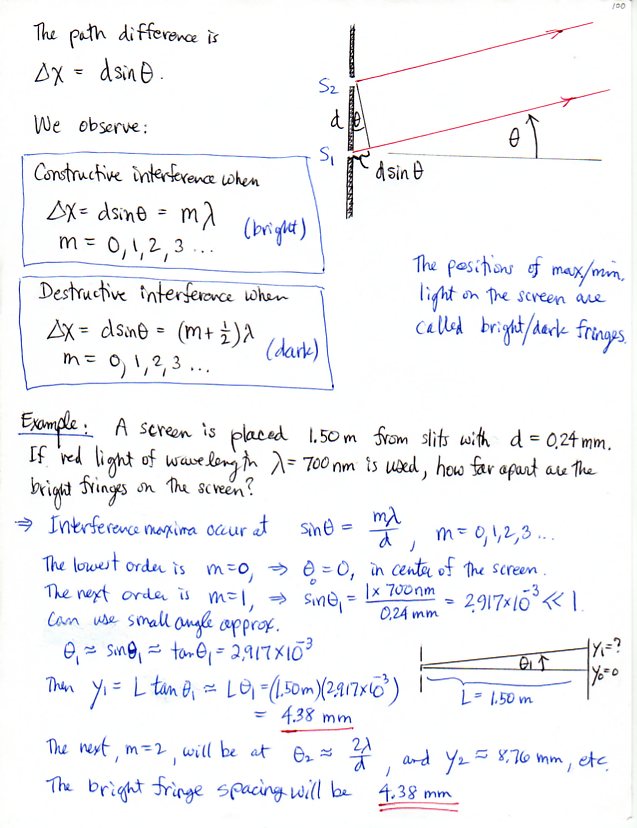 100
The path difference is
Δx = d sinθ.
We observe:
S₂
d
θ
S₁
d sinθ
θ
Constructive interference when
Δx = d sinθ = mλ
m = 0, 1, 2, 3 ...
(bright)
Destructive interference when
Δx = d sinθ = (m+½)λ
m = 0, 1, 2, 3 ...
(dark)
The positions of max/min.
light on the screen are
called bright/dark fringes.
Example: A screen is placed 1.50 m from slits with d = 0.24 mm.
If red light of wavelength λ = 700 nm is used, how far apart are the
bright fringes on the screen?
⇒ Interference maxima occur at sinθ = mλ/d, m = 0, 1, 2, 3 ...
The lowest order is m=0, ⇒ θ₀ = 0, in center of the screen.
The next order is m=1, ⇒ sinθ₁ = 1 × 700 nm / 0.24 mm = 2.917×10⁻³ << 1.
Can use small angle approx.
θ₁ ≈ sinθ₁ ≈ tanθ₁ = 2.917×10⁻³
Then y₁ = L tanθ₁ ≈ Lθ₁ = (1.50 m)(2.917×10⁻³)
= 4.38 mm
θ₁
y₁ = ?
y₀ = 0
L = 1.50 m
The next, m=2, will be at θ₂ ≈ 2λ/d, and y₂ ≈ 8.76 mm, etc.
The bright fringe spacing will be 4.38 mm